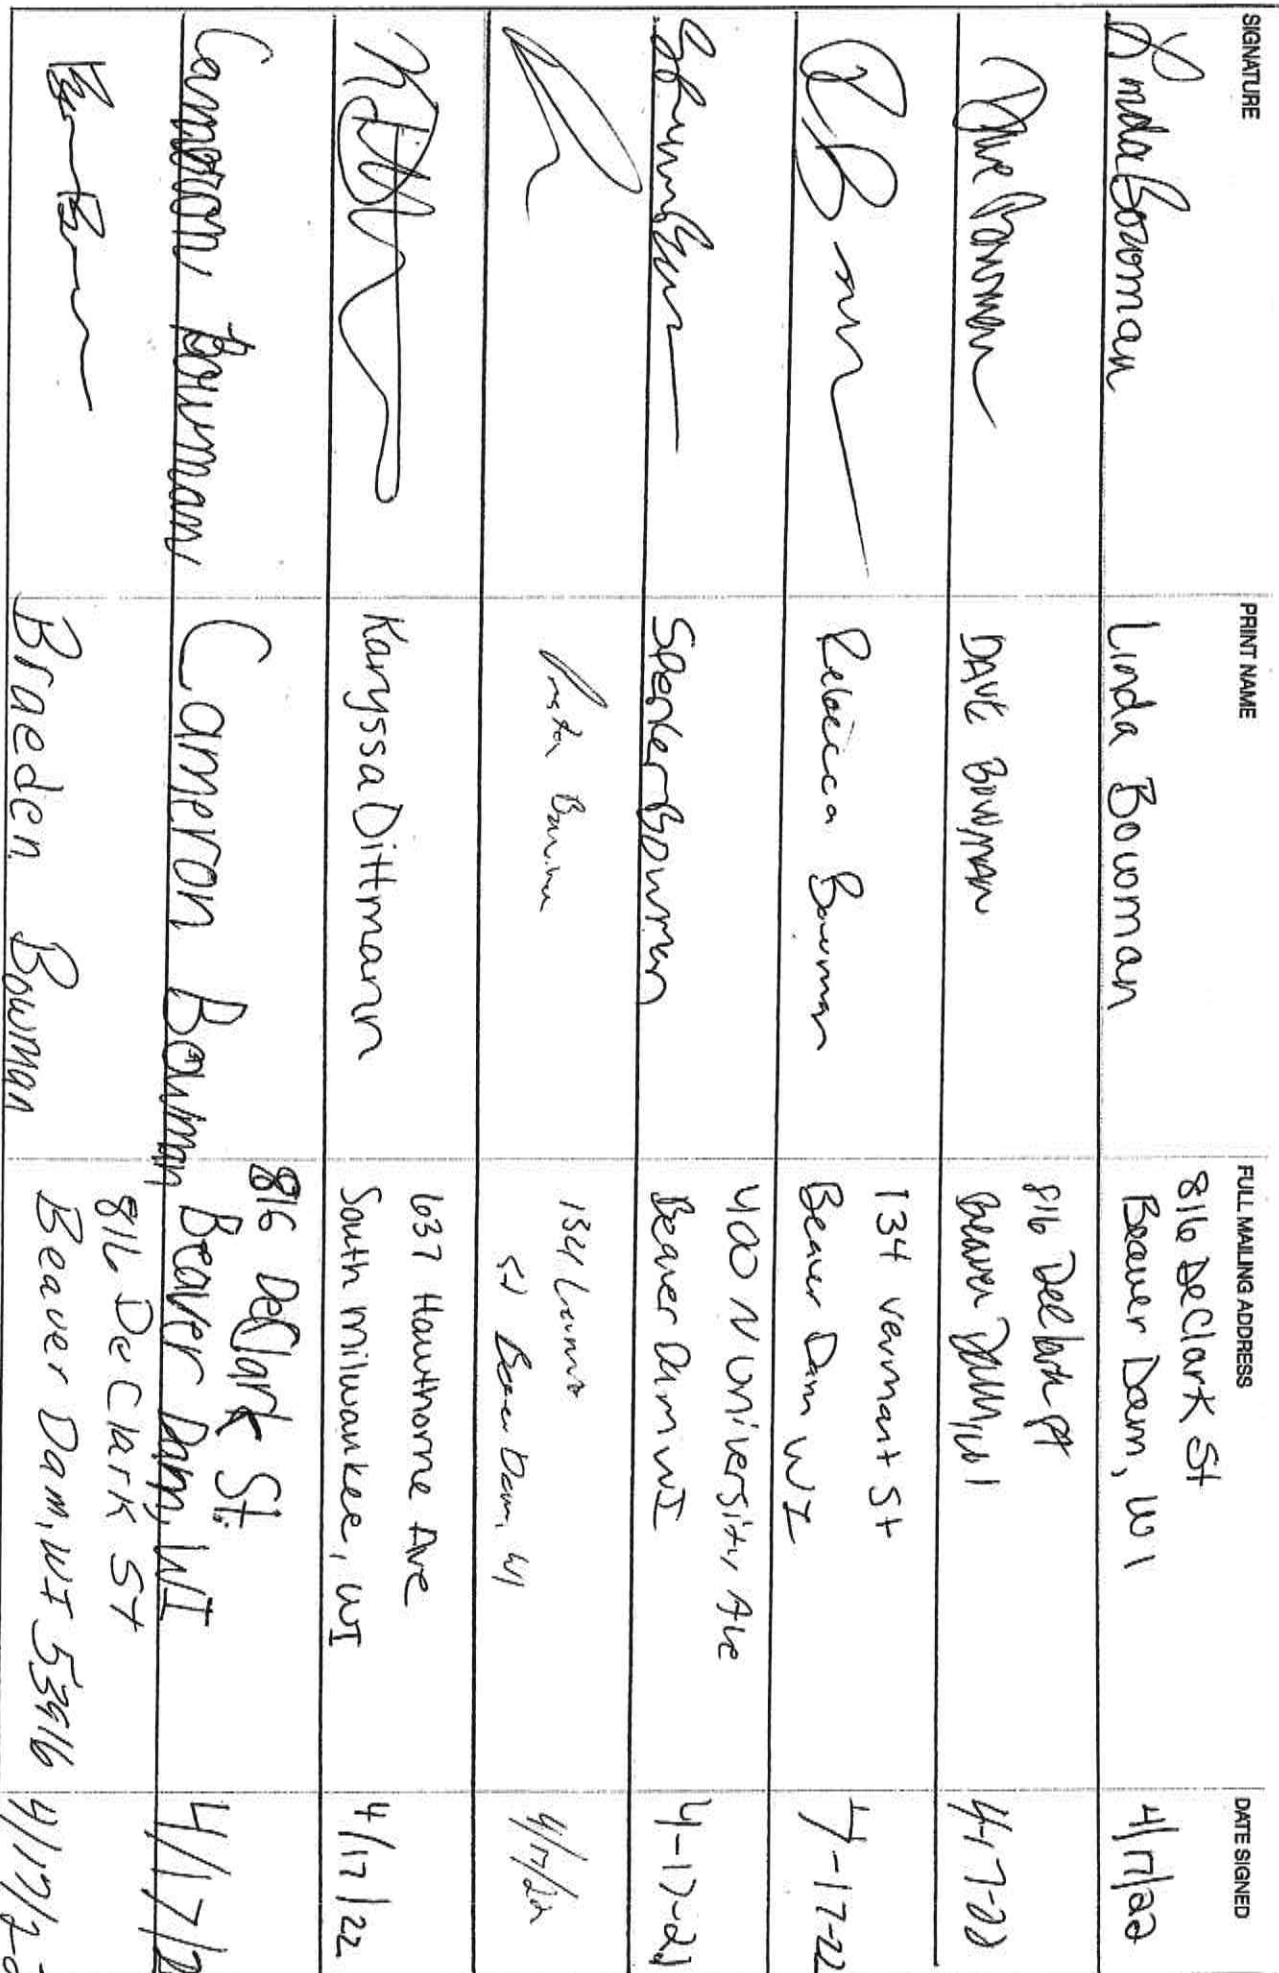 SIGNATURE PRINT NAME FULL MAILING ADDRESS DATE SIGNED
Linda Bowman Linda Bowman 816 DeClark St
Beaver Dam, WI 4/17/22
Dave Bowman DAVE BOWMAN 816 DeClark St
Beaver Dam, WI 4-17-22
Rebecca Bowman 134 Vermont St
Beaver Dam WI 4-17-22
Spencer Bowman 400 N University Ave
Beaver Dam WI 4-17-22
Bowman 134
St Beaver Dam, WI 4/17/22
Karyssa Dittmann 637 Hawthorne Ave
South Milwaukee, WI 4/17/22
Cameron Bowman Cameron Bowman 816 DeClark St.
Beaver Dam, WI 4/17/2
Braeden Bowman 816 DeClark St
Beaver Dam, WI 53916 4/17/2